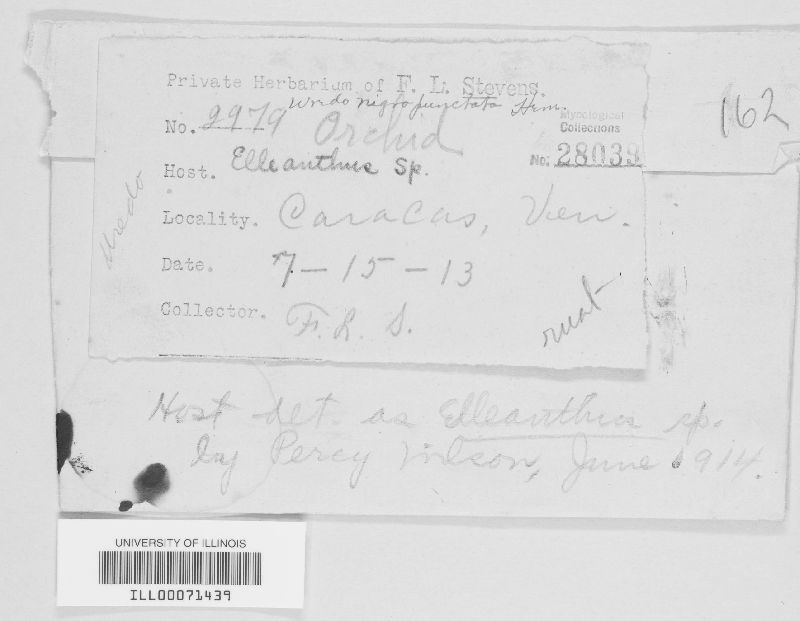 Private Herbarium of F. L. Stevens.
Uredo nigropunctata Hem.
No. 2979 Orchid
Mycological
Collections
No: 28039
162
Host. Elleanthus Sp.
Uredo
Locality. Caracas, Ven.
Date. 7-15-13
rust
Collector. F. L. S.
Host det. as Elleanthus sp.
by Percy Wilson, June 1914.
UNIVERSITY OF ILLINOIS
ILL00071439